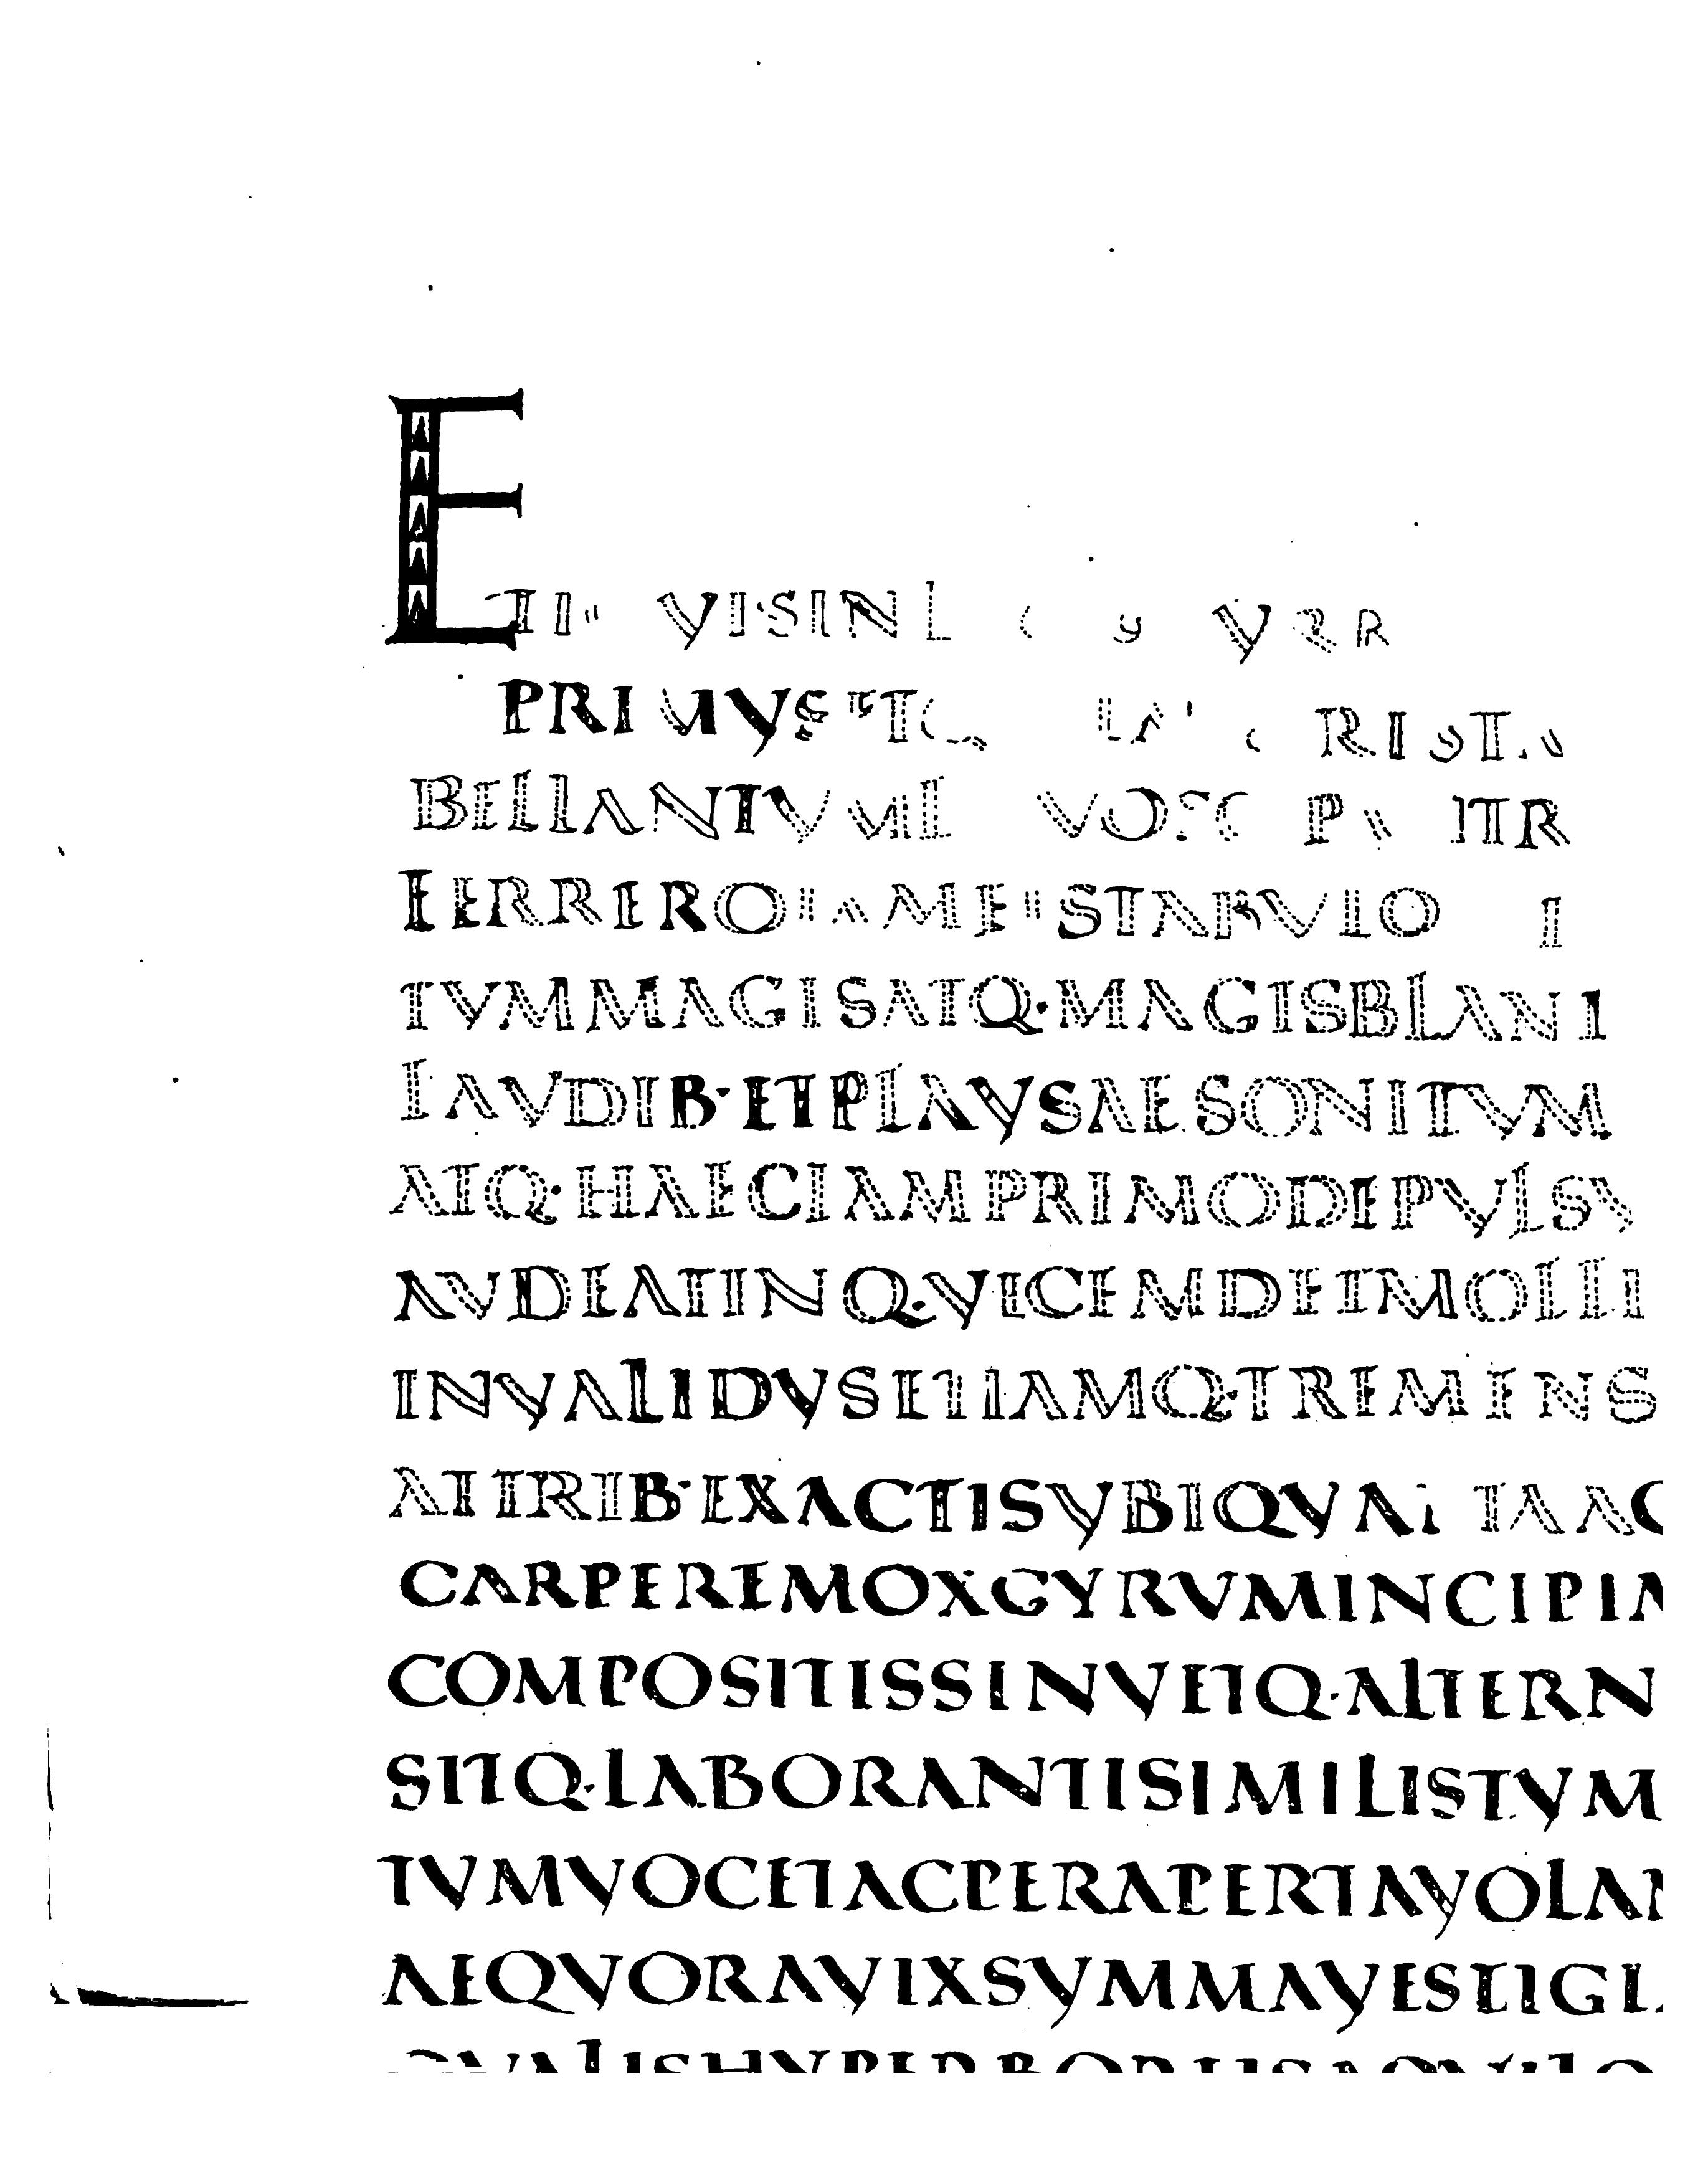 ET I VISINL C V VRR
PRIMVSETQ LA RISTA
BELLANTVMLITVOSQ PATITR
FERREROTAMETSTABVLO F
TVMMAGISATQ·MAGISBLANI
LAVDIB·ETPLAVSAESONITVM
ATQ·HAECIAMPRIMODEPVLSV
AVDEATINQ·VICEMDETMOLLI
INVALIDVSETIAMQ·TREMENS
ATTRIB·EXACTISVBIQVARTAAC
CARPEREMOXGYRVMINCIPIA
COMPOSITISSINVETQ·ALTERN
SITQ·LABORANTISIMILISTVM
TVMVOCETACPERAPERTAVOLAN
AEQVORAVIXSVMMAVESTIGI
QVALISHYPERBOREISAQVILO